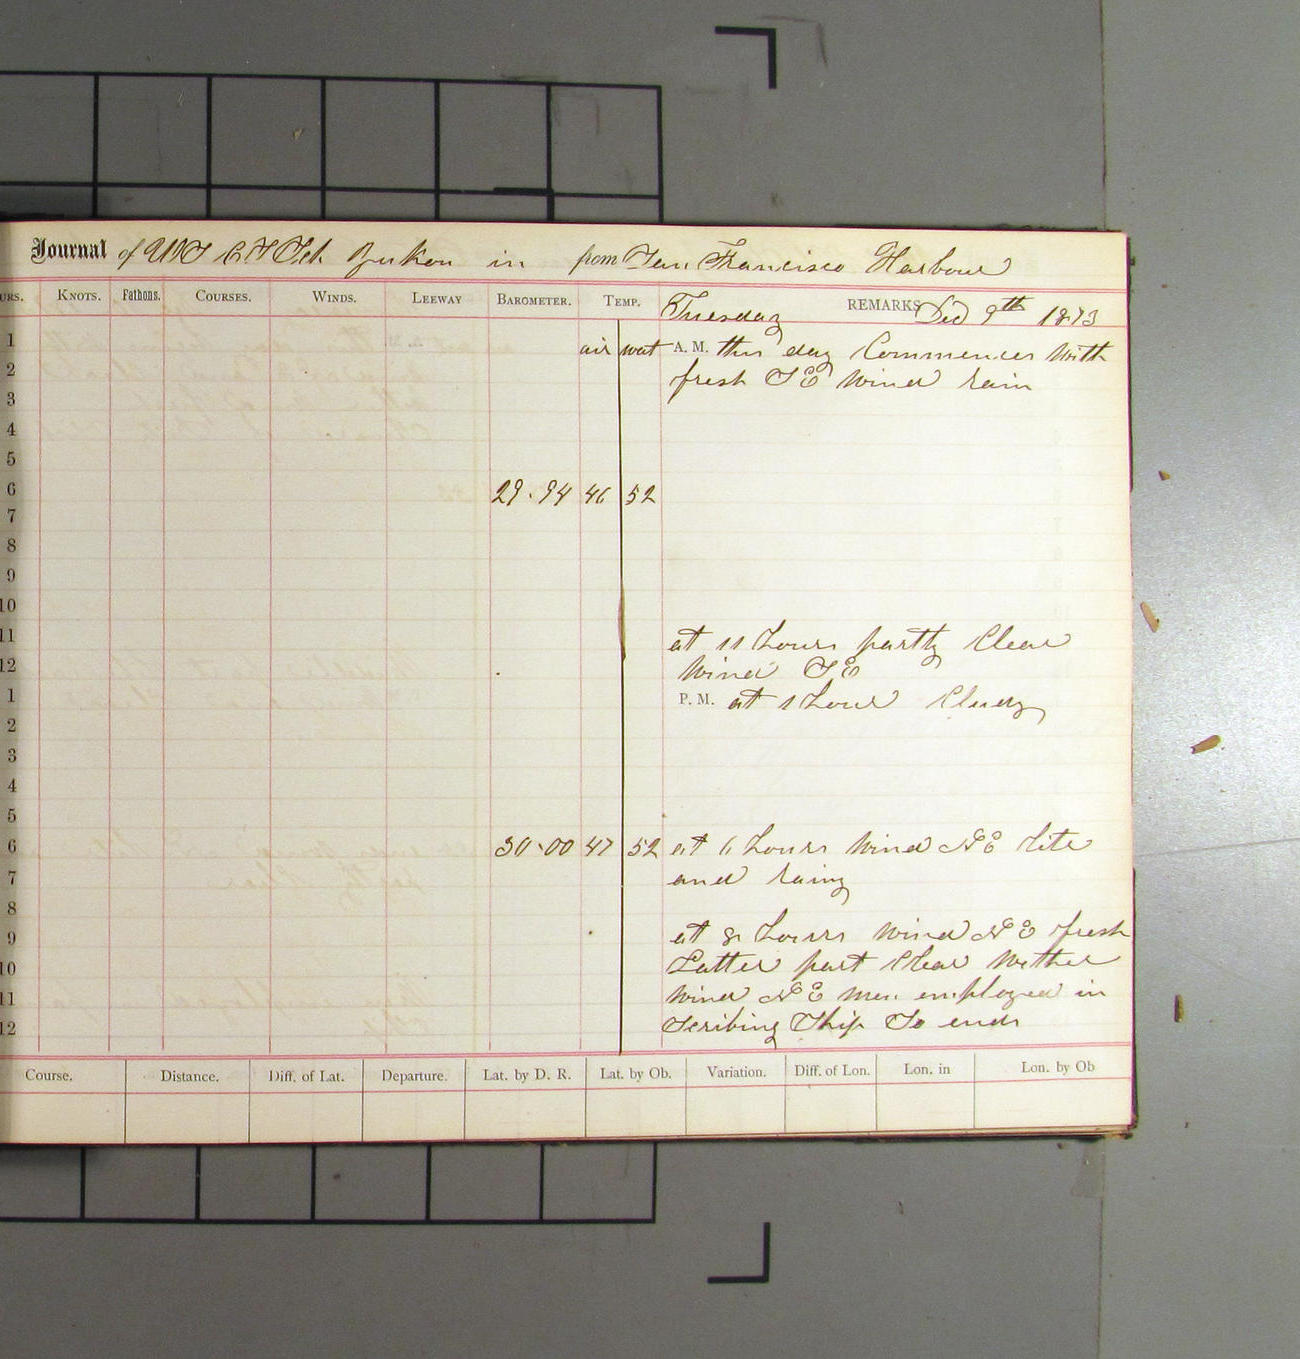 Journal of U S C S Sch Yukon in from San Francisco Harbour
URS. KNOTS. Fathoms. COURSES. WINDS. LEEWAY BAROMETER. TEMP. Tuesday REMARKS Did 9th 1873
1 air wat A. M. this day Commences With
2 fresh S E Wind rain
3
4
5
6 29.94 46 52
7
8
9
10
11 at 11 hours partly Clear
12 Wind S E
1 P. M. at 1 hour Cludy
2
3
4
5
6 30.00 47 52 at 6 hours Wind N E lite
7 and rainy
8
9 at 8 hours Wind N E fresh
10 Latter part Clear Wether
11 Wind N E men employed in
12 Scribing Ship So ends
Course. Distance. Diff. of Lat. Departure. Lat. by D. R. Lat. by Ob. Variation. Diff. of Lon. Lon. in Lon. by Ob